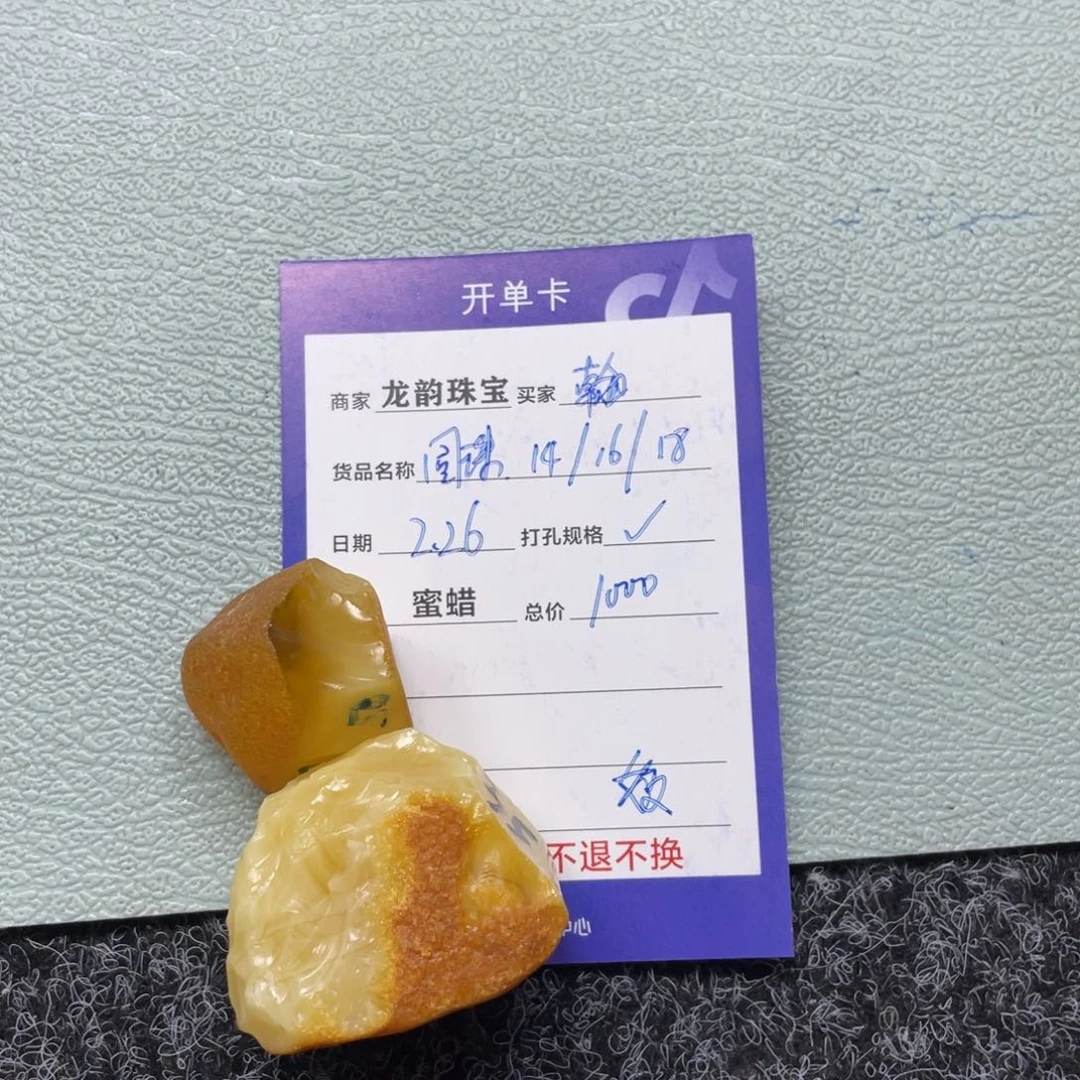 开单卡
商家 龙韵珠宝 买家 翰
货品名称 圆珠 14/16/18
日期 2.26 打孔规格 ✓
蜜蜡 总价 1000
不退不换
中心